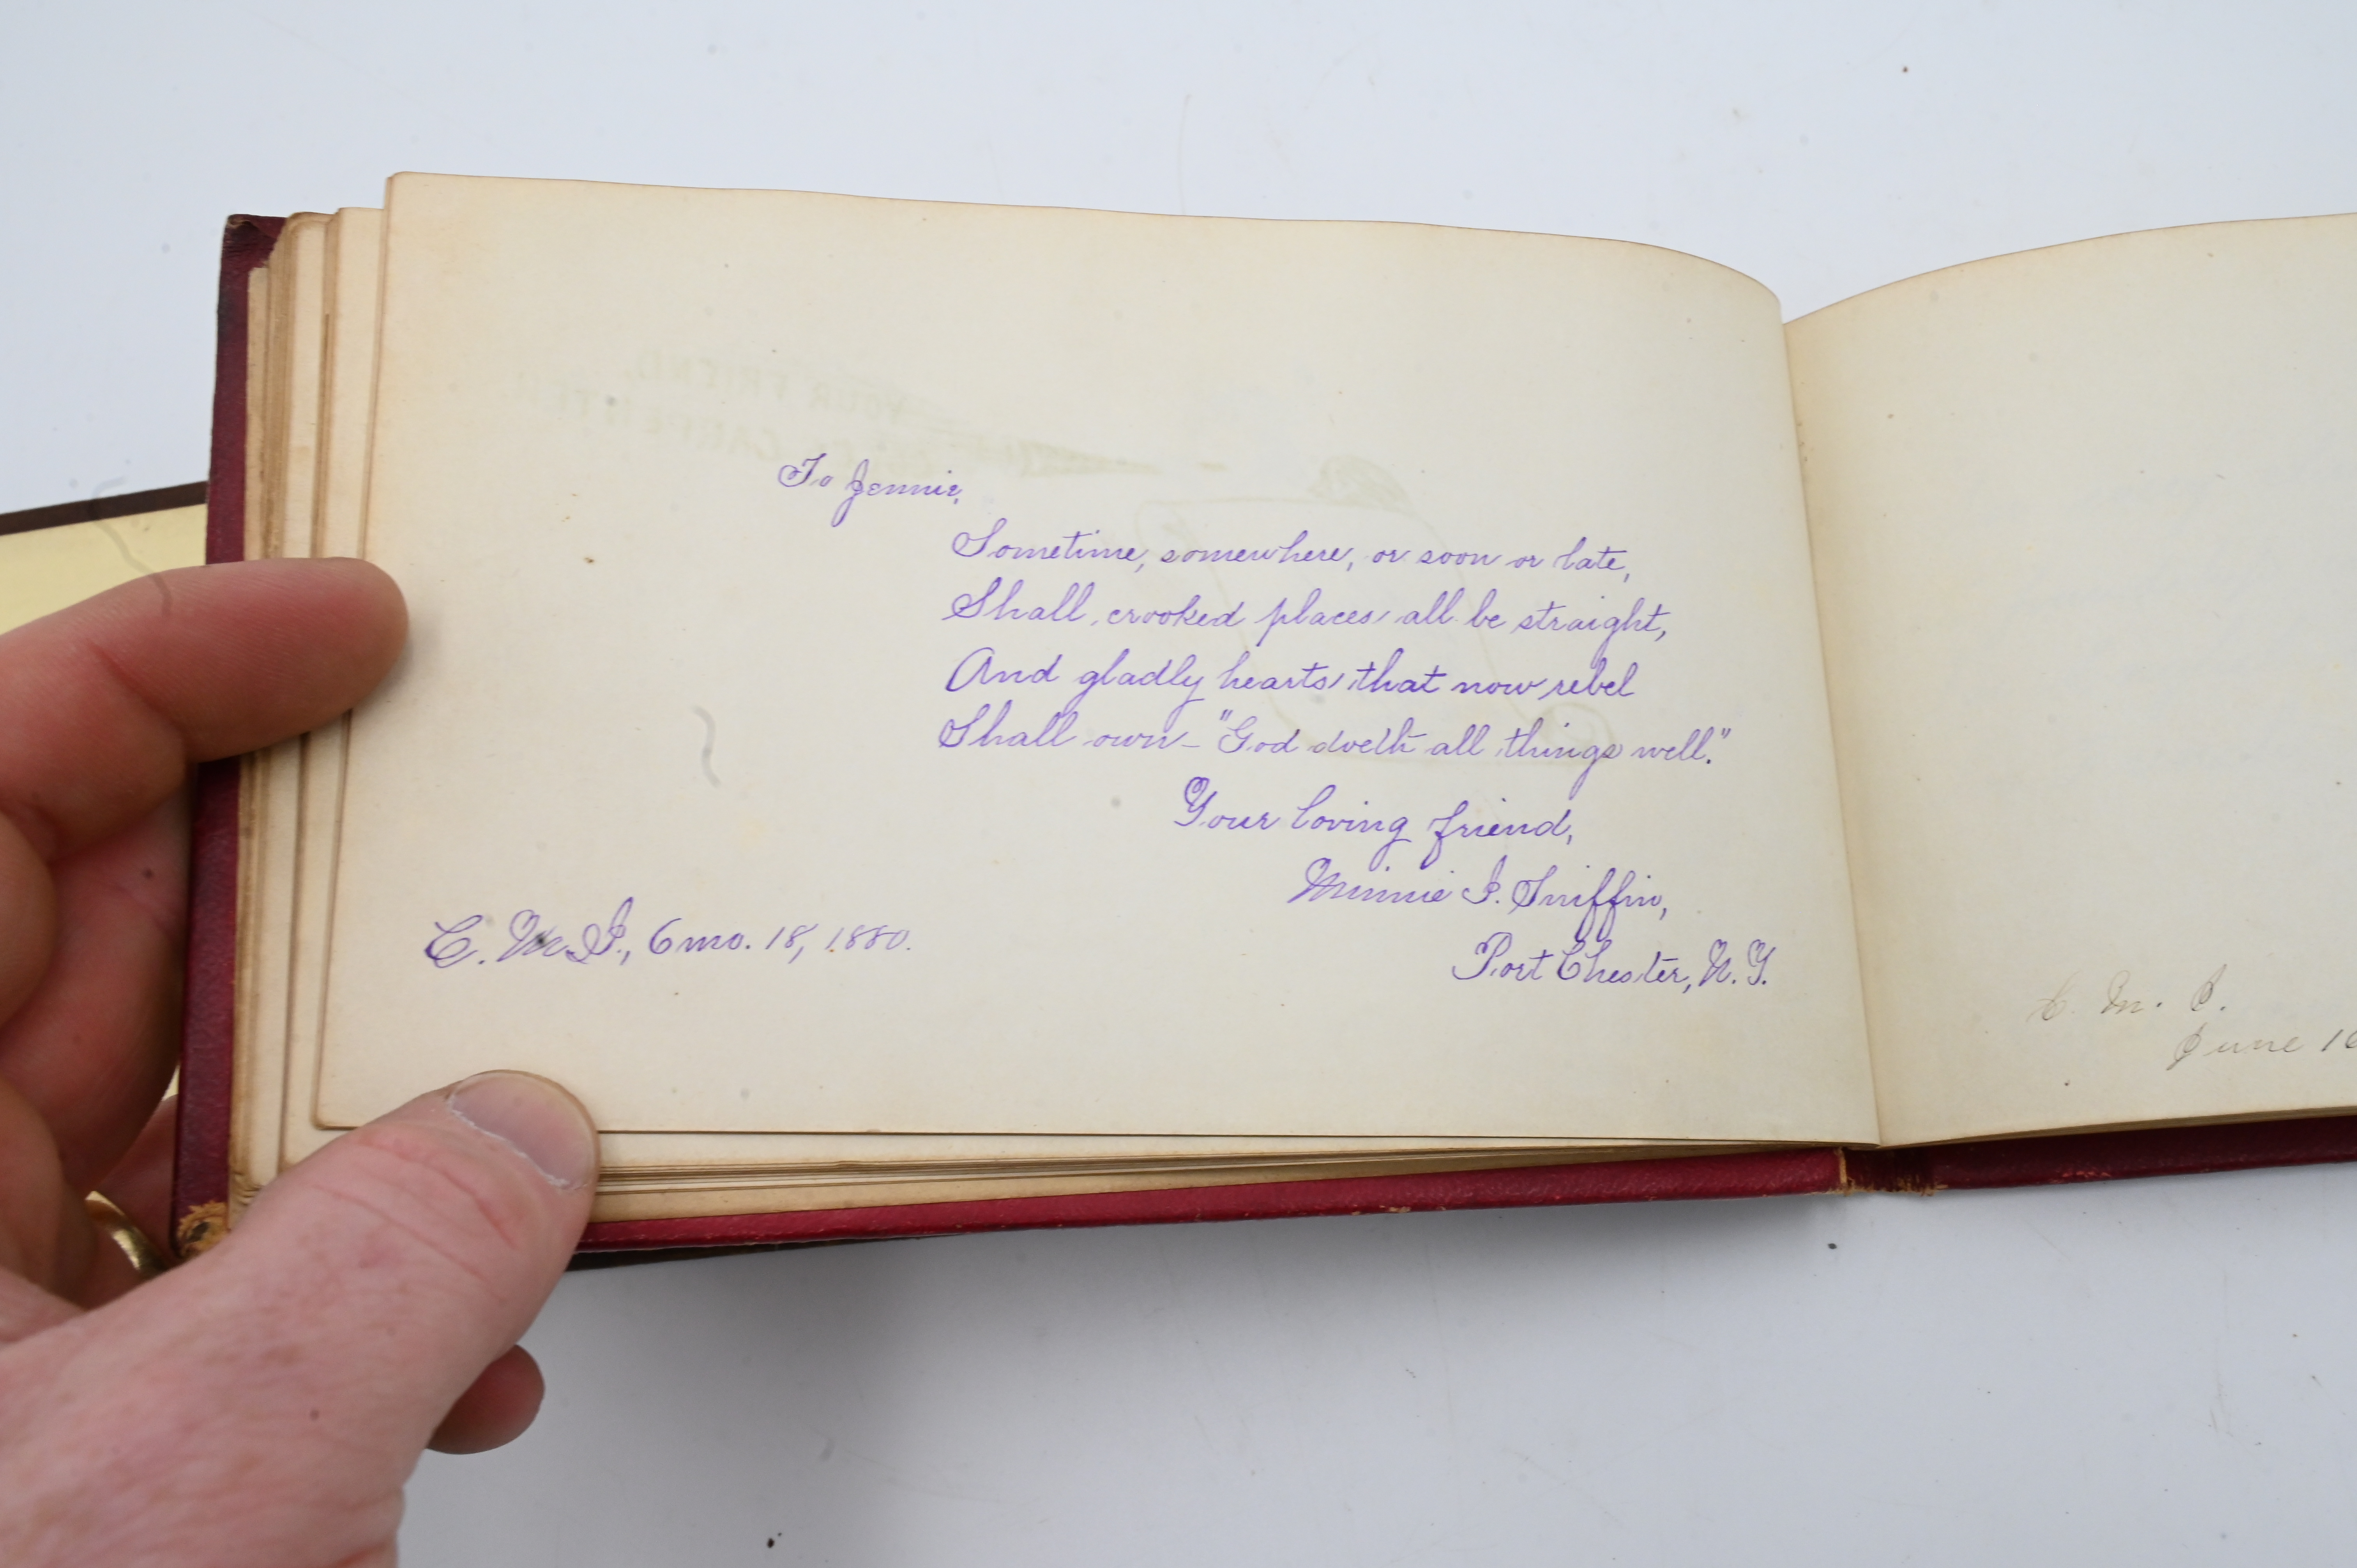 To Jennie,
Sometime, somewhere, or soon or late,
Shall crooked places all be straight,
And gladly hearts that now rebel
Shall own - "God doeth all things well."
Your loving friend,
Minnie I. Sniffin,
Port Chester, N.Y.
C. M. I., 6 mo. 18, 1880.
YOUR FRIEND,
CARPENTER
C. M. I.
June 16